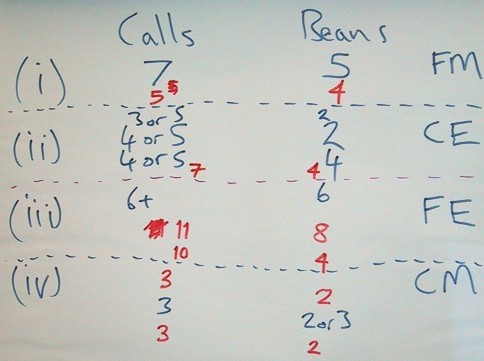 Calls Beans
(i) 7 5 FM
5 4
3 or 5 2
(ii) 4 or 5 2 CE
4 or 5 7 4 4
(iii) 6+ 6 FE
11 8
10 4
(iv) 3 2 CM
3 2 or 3
3 2